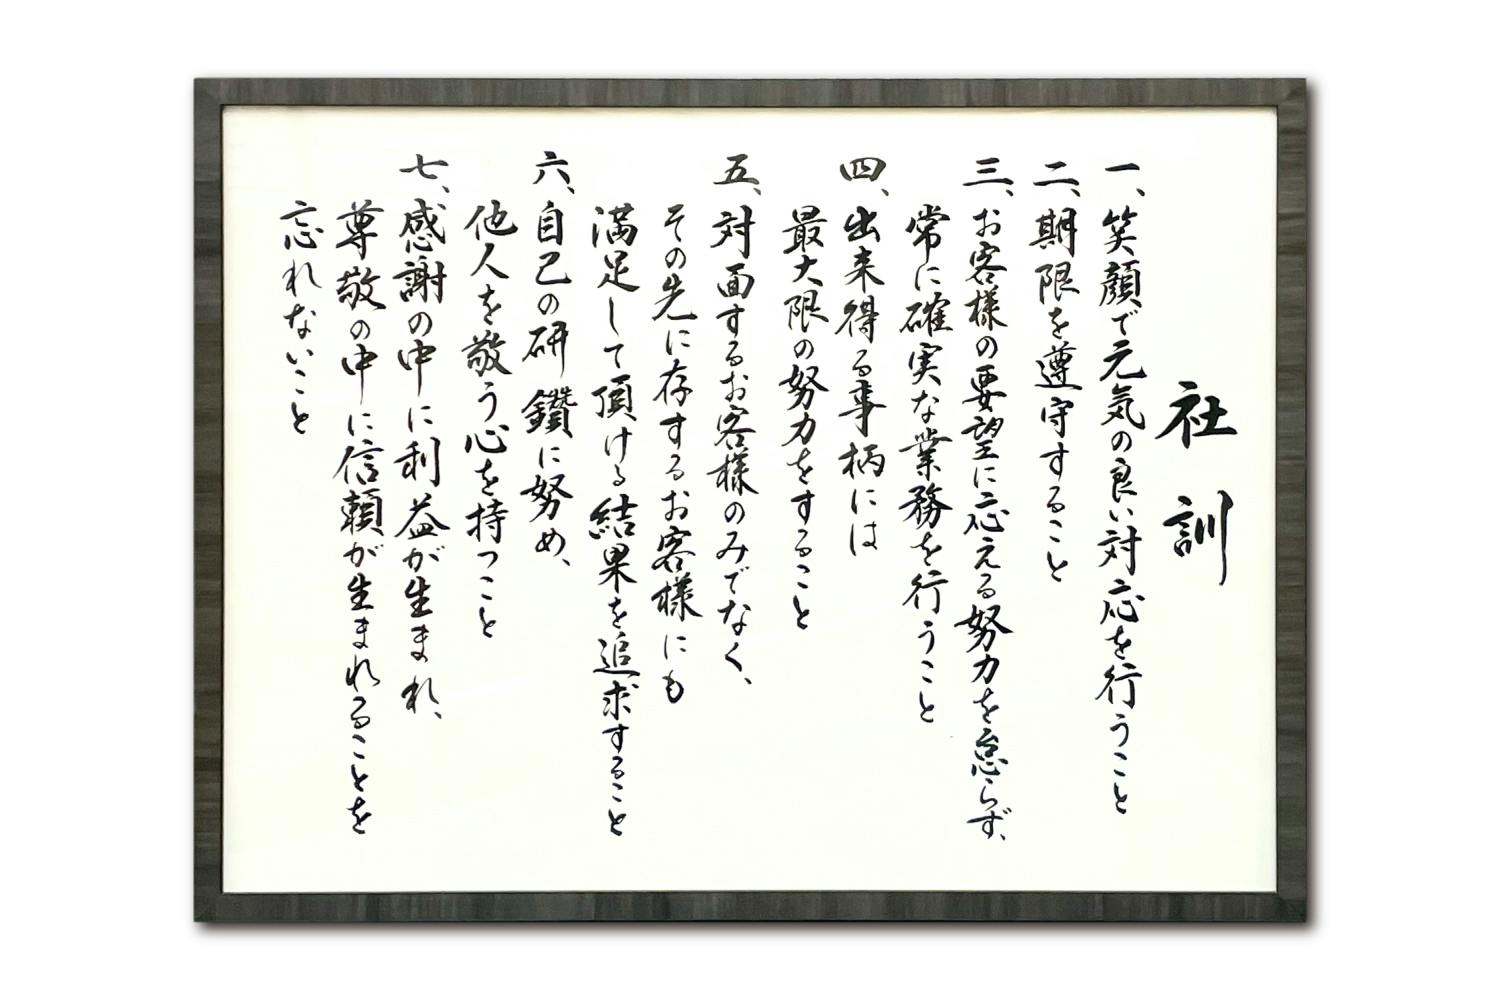 社訓
一、笑顔で元気の良い対応を行うこと
二、期限を遵守すること
三、お客様の要望に応える努力を怠らず、
常に確実な業務を行うこと
四、出来得る事柄には
最大限の努力をすること
五、対面するお客様のみでなく、
その先に存するお客様にも
満足して頂ける結果を追求すること
六、自己の研鑽に努め、
他人を敬う心を持つこと
七、感謝の中に利益が生まれ、
尊敬の中に信頼が生まれることを
忘れないこと